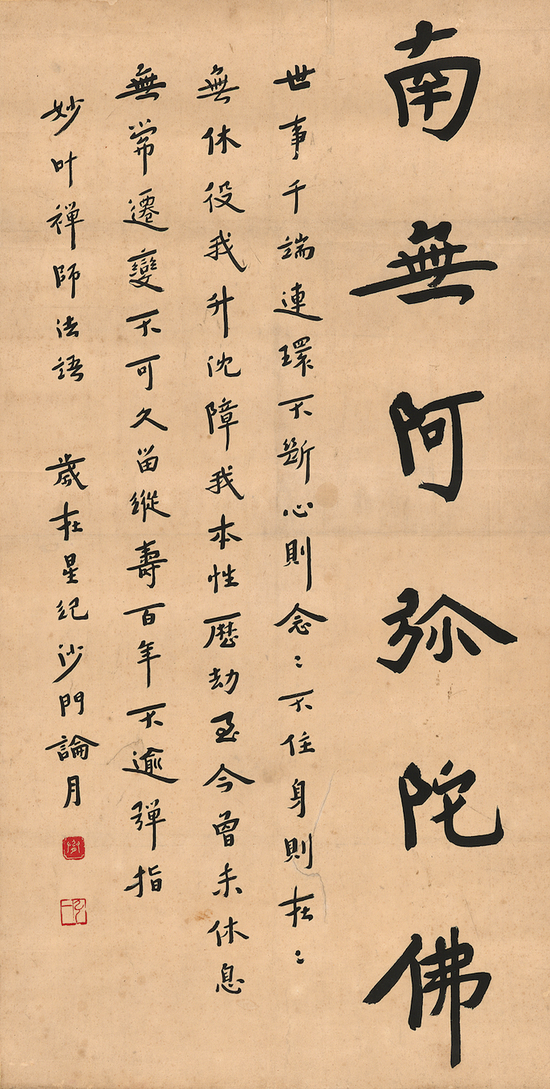 南無阿弥陀佛
世事千端連環不斷心則念:不住身則在:
無休役我升沈障我本性歷劫至今曾未休息
無常遷變不可久留縱壽百年不逾彈指
妙叶禅師法語 歲在星紀沙門論月